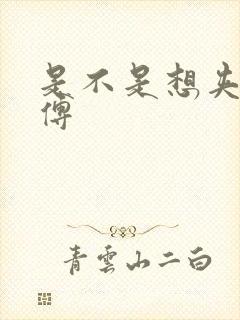 是不是想失
傅
青雲山二白